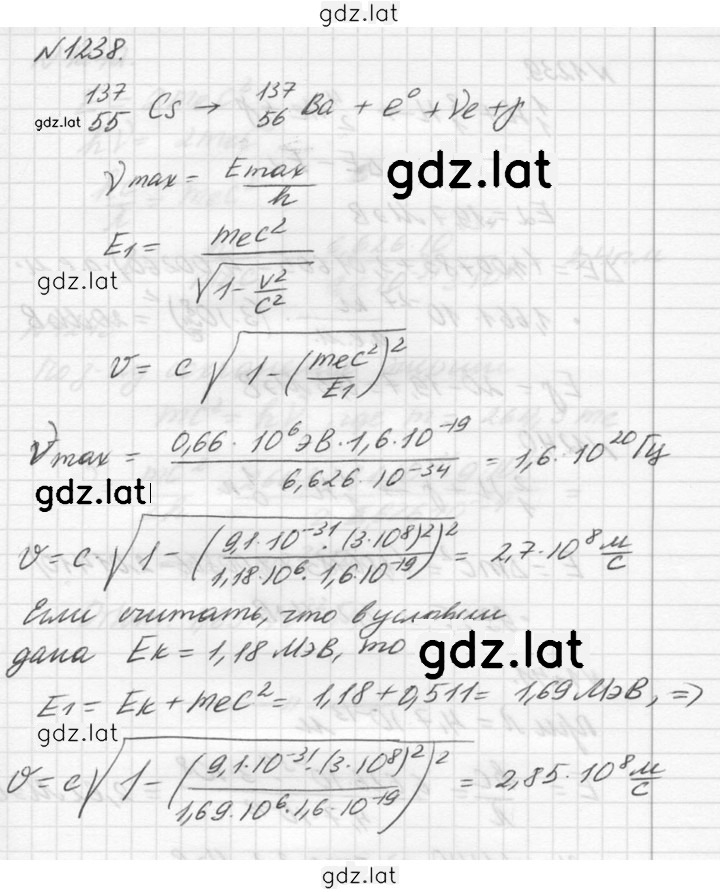 gdz.lat
N1238.
¹³⁷₅₅ Cs → ¹³⁷₅₆ Ba + e⁰ + νe + γ
gdz.lat
νmax = Emax / h
gdz.lat
E₁ = mec² / √(1 - v²/c²)
gdz.lat
v = c √(1 - (mec²/E₁)²)
νmax = 0,66 · 10⁶ эВ · 1,6 · 10⁻¹⁹ / 6,626 · 10⁻³⁴ = 1,6 · 10²⁰ Гц
gdz.lat
v = c √(1 - (9,1 · 10⁻³¹ · (3 · 10⁸)² / 1,18 · 10⁶ · 1,6 · 10⁻¹⁹)²) = 2,7 · 10⁸ м/с
Если считать, что в условии
дана Eк = 1,18 МэВ, то
gdz.lat
E₁ = Eк + mec² = 1,18 + 0,511 = 1,69 МэВ, ⇒
gdz.lat
v = c √(1 - (9,1 · 10⁻³¹ · (3 · 10⁸)² / 1,69 · 10⁶ · 1,6 · 10⁻¹⁹)²) = 2,85 · 10⁸ м/с
gdz.lat